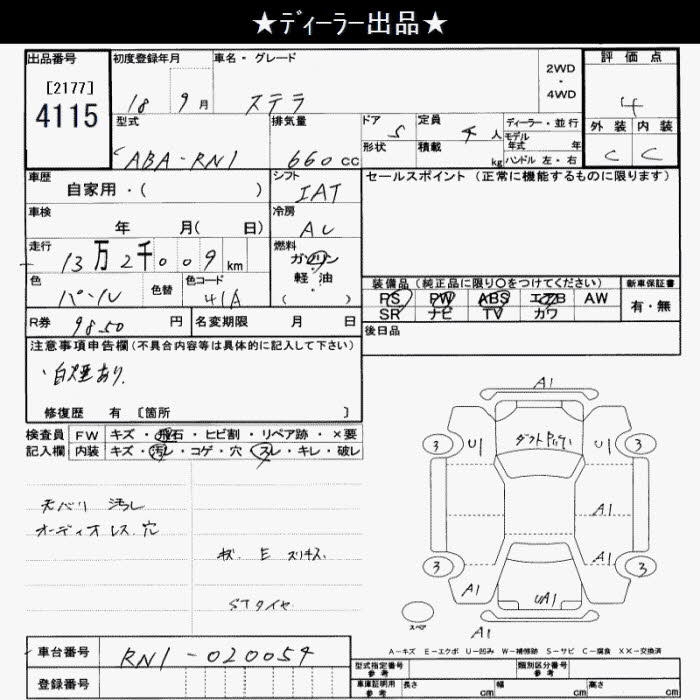 ★ディーラー出品★
出品番号 初度登録年月 車名・グレード 2WD・4WD 評価点
[2177]
4115
18 9月 ステラ 4
型式 排気量 ドア 5 定員 4人 ディーラー・並行 外装 内装
形状 積載 kg モデル年式 年 ハンドル 左・右
ABA-RN1 660cc C C
車歴 シフト セールスポイント (正常に機能するものに限ります)
自家用・( ) IAT
車検 冷房
年 月( 日) AC
走行 燃料
13万2千009km ガソリン
軽・油
( )
色 色替 色コード
パール 41A
装備品 (純正品に限り〇をつけてください) 新車保証書
PS PW ABS エアB AW 有・無
SR ナビ TV カワ
R券 9850円 名変期限 月 日
後日品
注意事項申告欄(不具合内容等は具体的に記入して下さい)
・白煙あり.
修復歴 有 [箇所 ]
検査員 FW キズ・飛石・ヒビ割・リペア跡・×要
記入欄 内装 キズ・汚レ・コゲ・穴・スレ・キレ・破レ
天バリ 汚レ
オーディオレス.穴
STタイヤ
A1
3 U1 U1 3
A1
3 A1 3
A1 UA1
A1
スペア
A-キズ E-エクボ U-凹み W-補修跡 S-サビ C-腐食 XX-交換済
車台番号 RN1-020054
登録番号
型式指定番号 参考 類別区分番号 参考
車庫証明用 参考 長さ cm 幅 cm 高さ cm